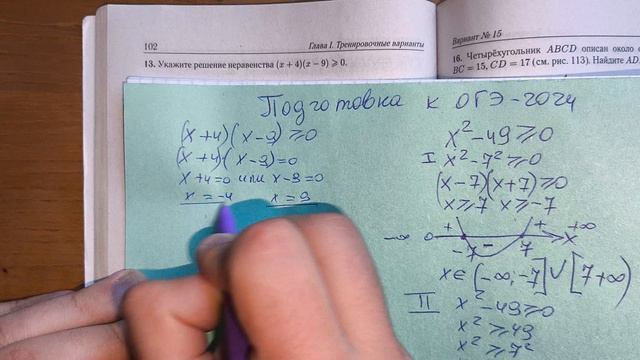 102
Глава I. Тренировочные варианты
13. Укажите решение неравенства (x + 4)(x − 9) ⩾ 0.
Вариант № 15
16. Четырёхугольник ABCD описан около
BC = 15, CD = 17 (см. рис. 113). Найдите AD.
Подготовка к ОГЭ-2024
(x+4)(x-9)⩾0
(x+4)(x-9)=0
x+4=0 или x-9=0
x=-4 x=9
x²-49⩾0
I x²-7²⩾0
(x-7)(x+7)⩾0
x⩾7 x⩾-7
+ - + +∞
-∞ -7 7 x
x∈(-∞,-7]∪[7+∞)
II x²-49⩾0
x²⩾49
x²⩾7²